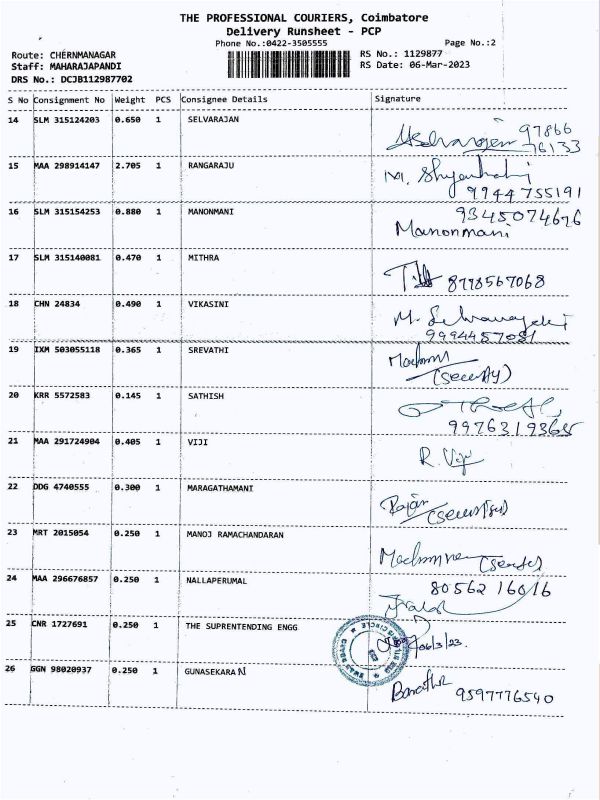 THE PROFESSIONAL COURIERS, Coimbatore
Delivery Runsheet - PCP
Phone No.:0422-3505555 Page No.:2
Route: CHERNMANAGAR RS No.: 1129877
Staff: MAHARAJAPANDI RS Date: 06-Mar-2023
DRS No.: DCJB112987702
S No Consignment No Weight PCS Consignee Details Signature
14 SLM 315124203 0.650 1 SELVARAJAN 97866
76133
15 MAA 298914147 2.705 1 RANGARAJU
9944755191
16 SLM 315154253 0.880 1 MANONMANI 9345074676
Manonmani
17 SLM 315140081 0.470 1 MITHRA 8778567068
18 CHN 24834 0.490 1 VIKASINI
9994457051
19 IXM 503055118 0.365 1 SREVATHI
(security)
20 KRR 5572583 0.145 1 SATHISH
21 MAA 291724904 0.405 1 VIJI R. Viji
22 DDG 4740555 0.300 1 MARAGATHAMANI
23 MRT 2015054 0.250 1 MANOJ RAMACHANDARAN
24 MAA 296676857 0.250 1 NALLAPERUMAL 8056216016
25 CNR 1727691 0.250 1 THE SUPRENTENDING ENGG 06/3/23.
26 GGN 98020937 0.250 1 GUNASEKARAN 9597776540